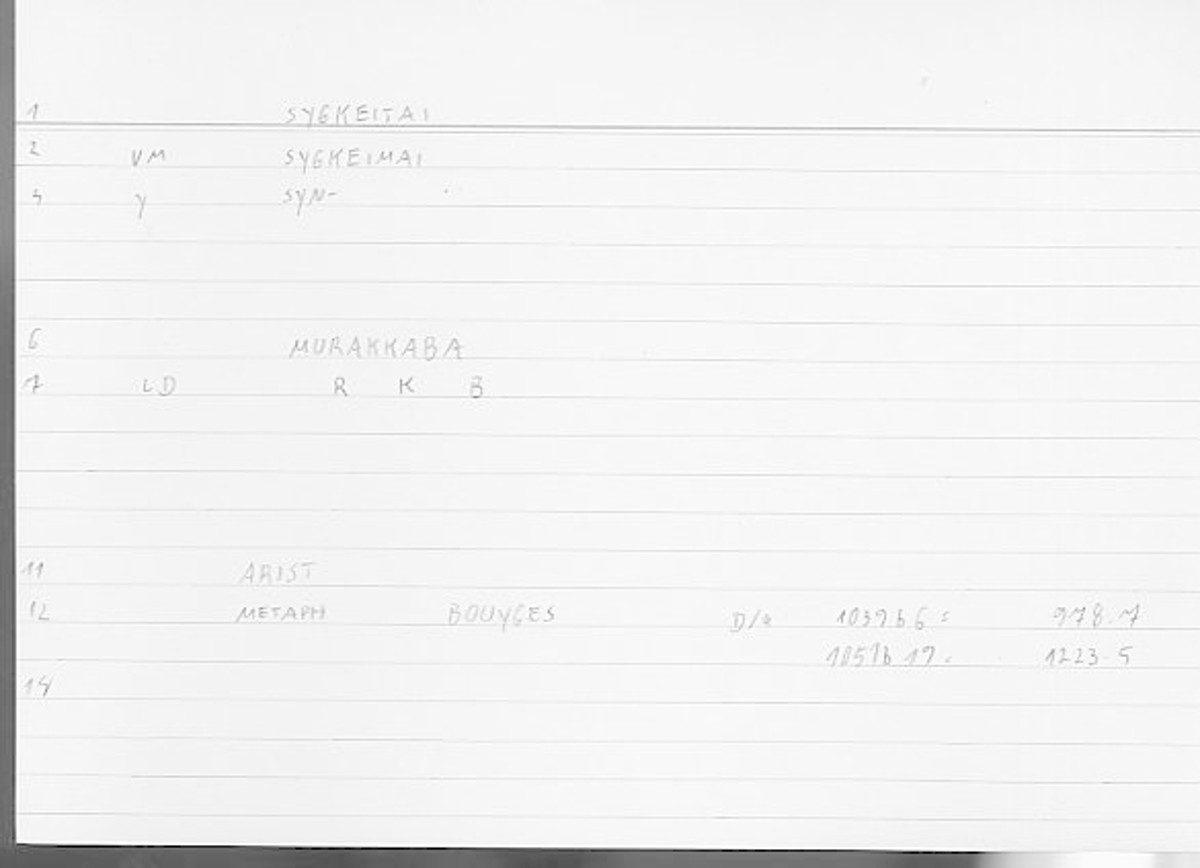 1 SYGKEITAI
2 VM SYGKEIMAI
3 Y SYN-
6 MURAKKABA
7 LD R K B
11 ARIST
12 METAPH BOUYGES D/* 1039b6: 978.7
1057b 19. 1223.5
14